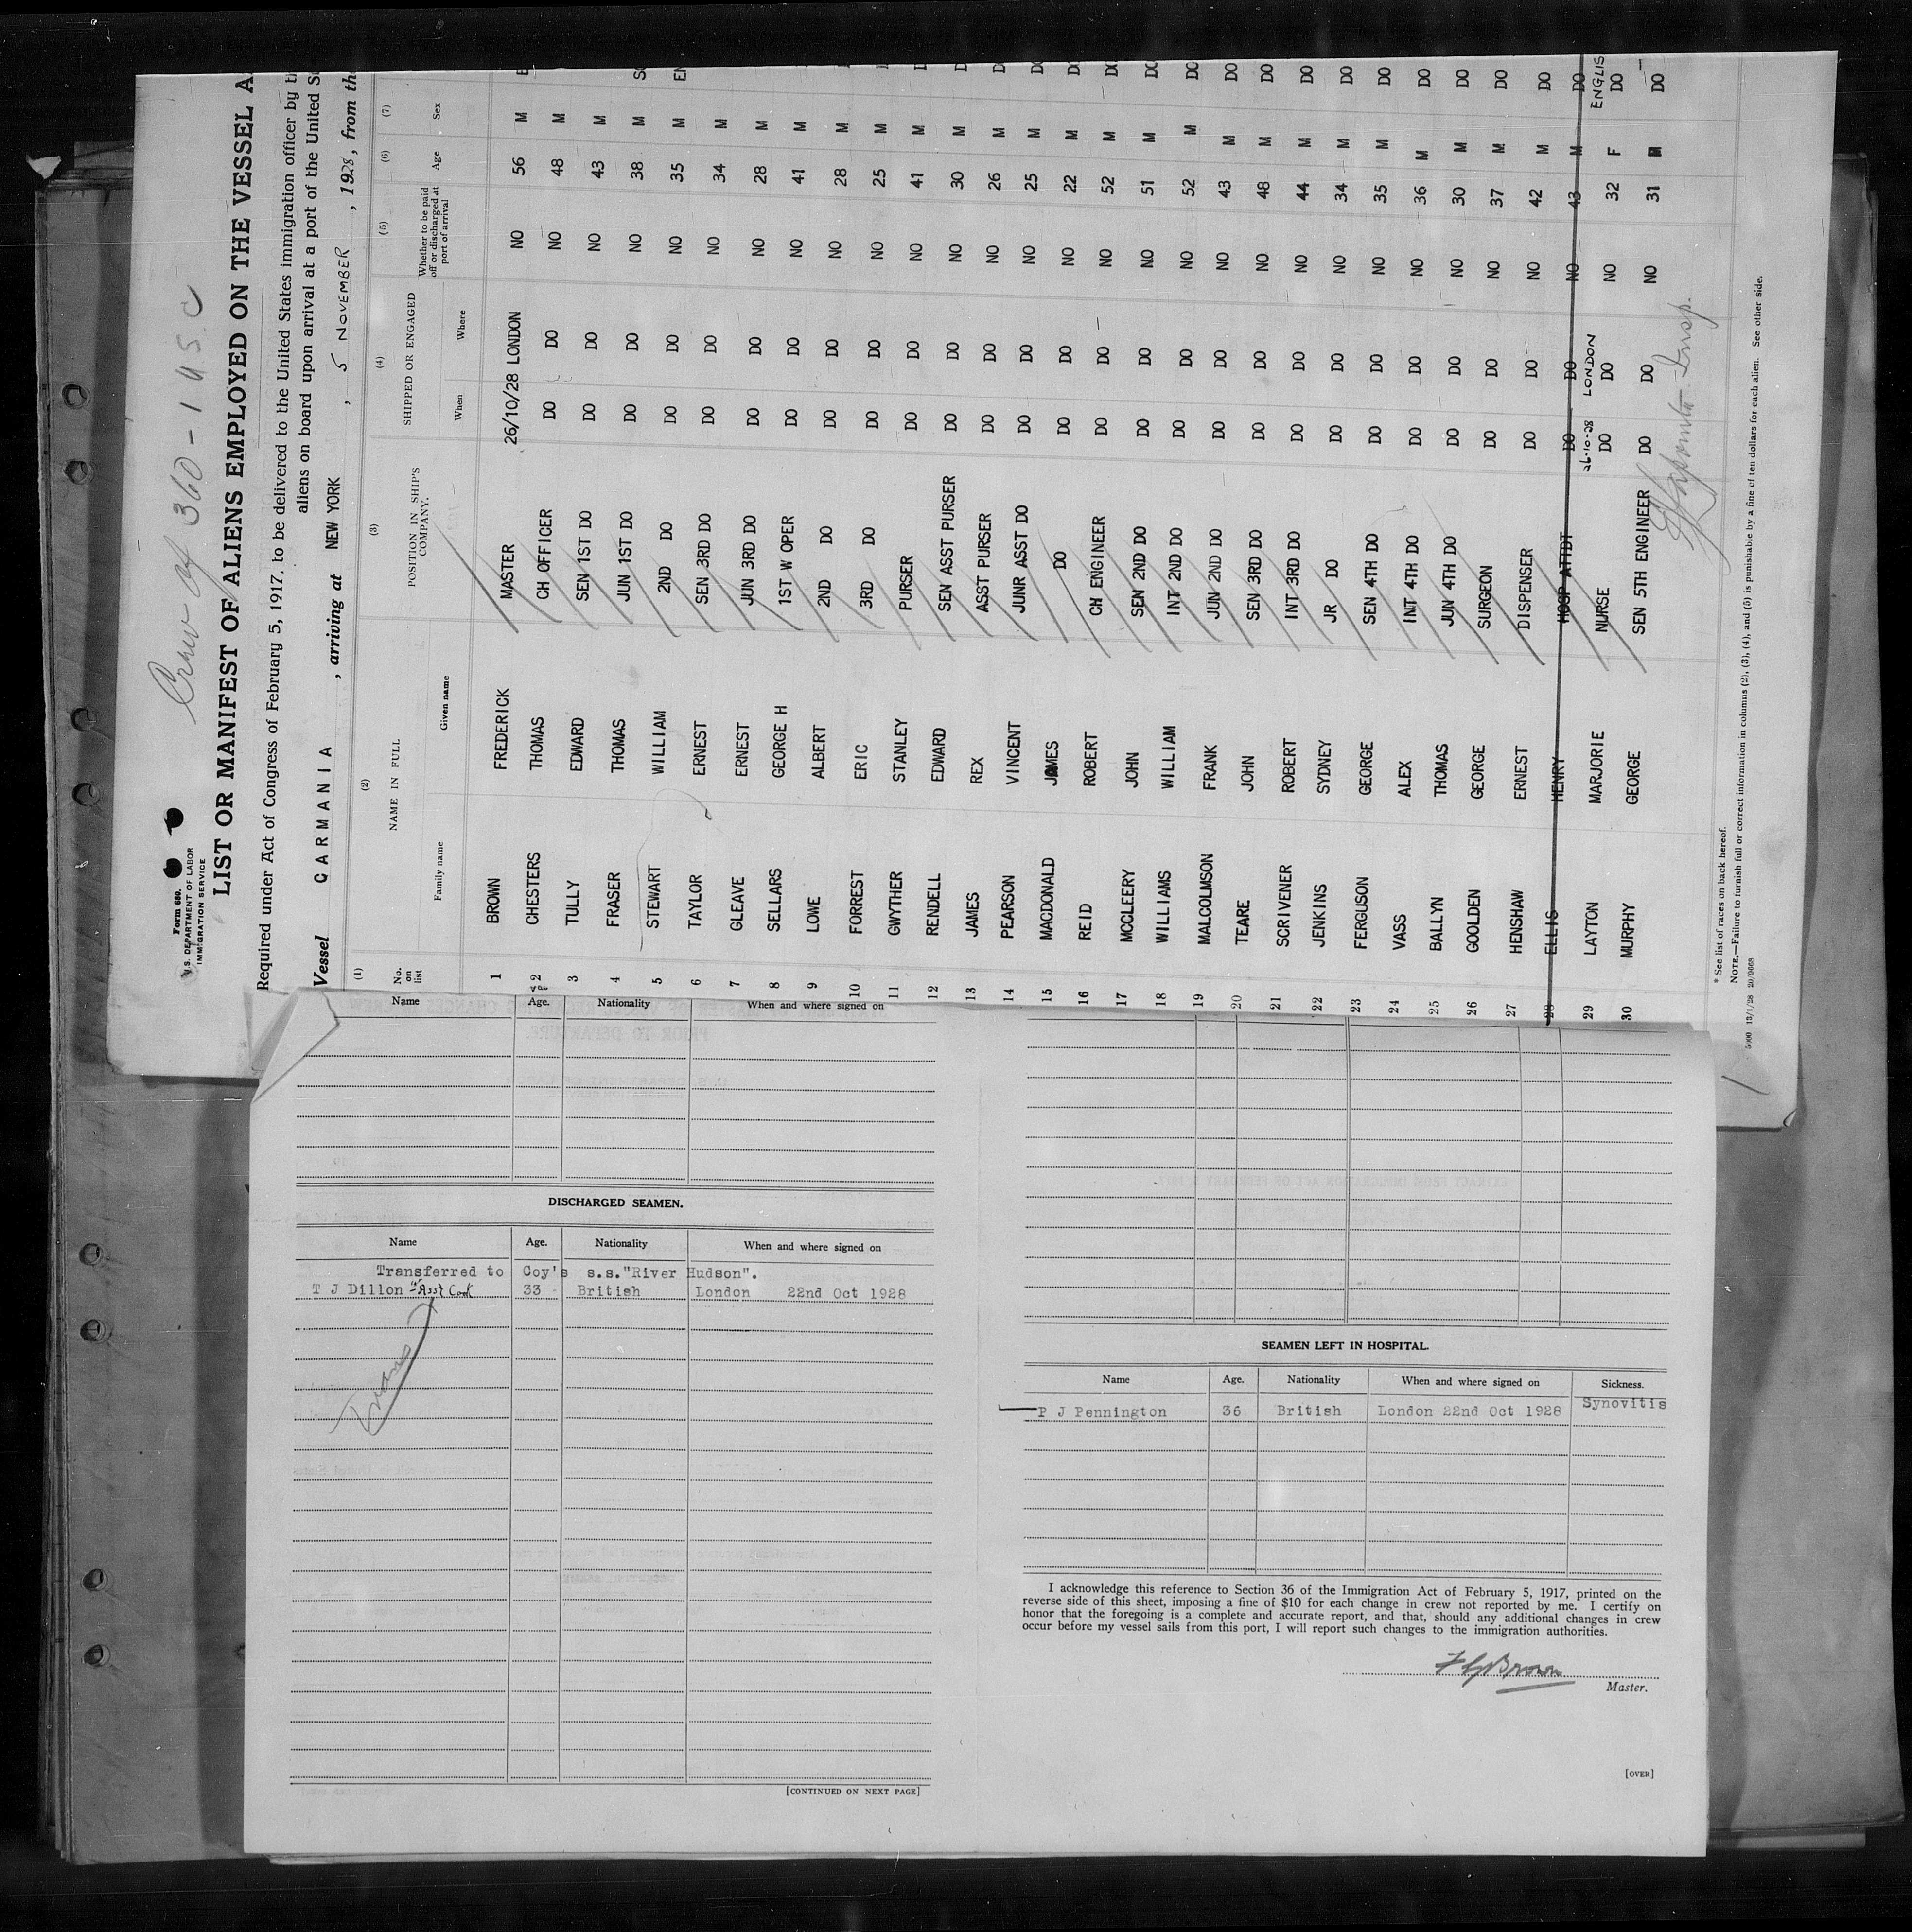 Crew of 360 - 1 U S. C
Form 680.
U.S. DEPARTMENT OF LABOR
IMMIGRATION SERVICE
LIST OR MANIFEST OF ALIENS EMPLOYED ON THE VESSEL A
Required under Act of Congress of February 5, 1917, to be delivered to the United States immigration officer by t
aliens on board upon arrival at a port of the United S
Vessel CARMANIA , arriving at NEW YORK , 5 NOVEMBER , 1928, from the
(1) (2) (3) (4) (5) (6) (7)
No. on list NAME IN FULL POSITION IN SHIP'S COMPANY. SHIPPED OR ENGAGED Whether to be paid off or discharged at port of arrival Age Sex
Family name Given name When Where
1 BROWN FREDERICK MASTER 26/10/28 LONDON NO 56 M E
2 CHESTERS THOMAS CH OFFICER DO DO NO 48 M
3 TULLY EDWARD SEN 1ST DO DO DO NO 43 M
4 FRASER THOMAS JUN 1ST DO DO DO NO 38 M SC
5 STEWART WILLIAM 2ND DO DO DO NO 35 M EN
6 TAYLOR ERNEST SEN 3RD DO DO DO NO 34 M
7 GLEAVE ERNEST JUN 3RD DO DO DO NO 28 M
8 SELLARS GEORGE H 1ST W OPER DO DO NO 41 M
9 LOWE ALBERT 2ND DO DO DO NO 28 M
10 FORREST ERIC 3RD DO DO DO NO 25 M
11 GWYTHER STANLEY PURSER DO DO NO 41 M D
12 RENDELL EDWARD SEN ASST PURSER DO DO NO 30 M D
13 JAMES REX ASST PURSER DO DO NO 26 M D
14 PEARSON VINCENT JUNR ASST DO DO DO NO 25 M DO
15 MACDONALD JAMES DO DO DO NO 22 M DO
16 REID ROBERT CH ENGINEER DO DO NO 52 M DO
17 MCCLEERY JOHN SEN 2ND DO DO DO NO 51 M DO
18 WILLIAMS WILLIAM INT 2ND DO DO DO NO 52 M DO
19 MALCOLMSON FRANK JUN 2ND DO DO DO NO 43 M DO
20 TEARE JOHN SEN 3RD DO DO DO NO 48 M DO
21 SCRIVENER ROBERT INT 3RD DO DO DO NO 44 M DO
22 JENKINS SYDNEY JR DO DO DO NO 34 M DO
23 FERGUSON GEORGE SEN 4TH DO DO DO NO 35 M DO
24 VASS ALEX INT 4TH DO DO DO NO 36 M DO
25 BALLYN THOMAS JUN 4TH DO DO DO NO 30 M DO
26 GOOLDEN GEORGE SURGEON DO DO NO 37 M DO
27 HENSHAW ERNEST DISPENSER DO DO NO 42 M DO
28 ELLIS HENRY HOSP ATTDT DO DO NO 43 M DO
26-10-28 LONDON ENGLIS
29 LAYTON MARJORIE NURSE DO DO NO 32 F DO
30 MURPHY GEORGE SEN 5TH ENGINEER DO DO NO 31 M DO
Insp.
* See list of races on back hereof.
NOTE.—Failure to furnish full or correct information in columns (2), (3), (4), and (5) is punishable by a fine of ten dollars for each alien. See other side.
5000 13/1/28 20/9668
Name Age. Nationality When and where signed on
DISCHARGED SEAMEN.
Name Age. Nationality When and where signed on
Transferred to Coy's s.s."River Hudson".
T J Dillon Asst Cook 33 British London 22nd Oct 1928
Trans
[CONTINUED ON NEXT PAGE]
SEAMEN LEFT IN HOSPITAL.
Name Age. Nationality When and where signed on Sickness.
P J Pennington 36 British London 22nd Oct 1928 Synovitis
I acknowledge this reference to Section 36 of the Immigration Act of February 5, 1917, printed on the
reverse side of this sheet, imposing a fine of $10 for each change in crew not reported by me. I certify on
honor that the foregoing is a complete and accurate report, and that, should any additional changes in crew
occur before my vessel sails from this port, I will report such changes to the immigration authorities.
F G Brown
Master.
[OVER]